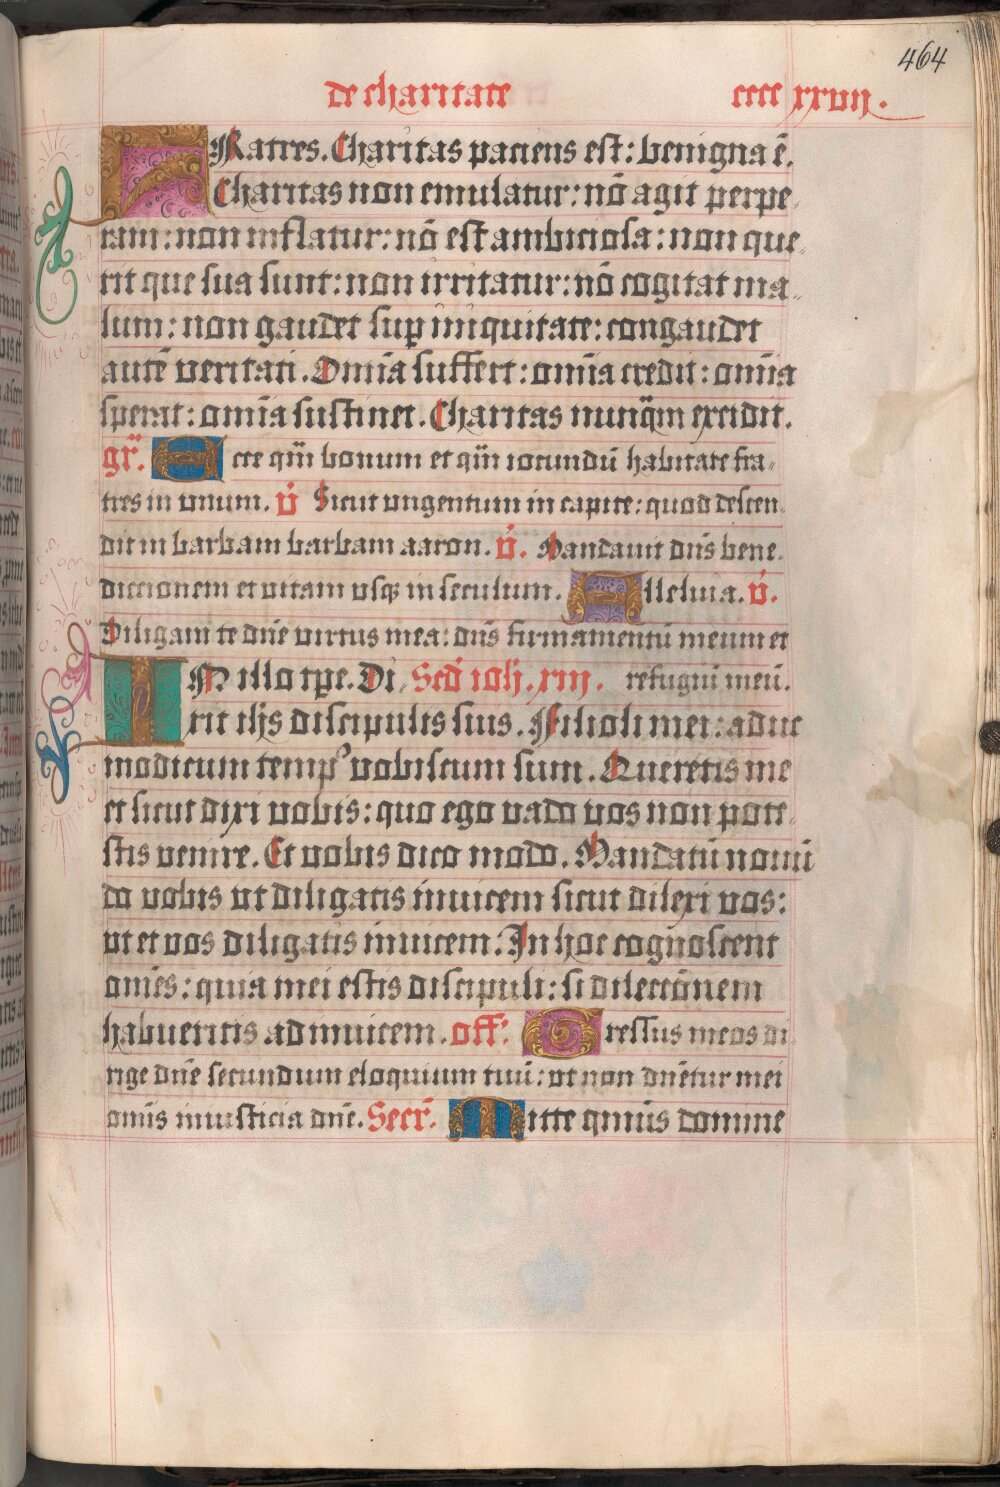 464
de charitate cccc xxvii.
FRatres. Charitas paciens est: benigna ē.
Charitas non emulatur: nō agit perpe-
ram: non inflatur: nō est ambiciosa: non que-
rit que sua sunt: non irritatur: nō cogitat ma-
lum: non gaudet sup iniquitate: congaudet
autē veritati. Omīa suffert: omīa credit: omīa
sperat: omīa sustinet. Charitas nunq̄m excidit.
gr̄. Ecce qm̄ bonum et qm̄ iocundū habitare fra-
tres in vnum. v̄ Sicut vngentum in capite: quod descen-
dit in barbam barbam aaron. v̄. Mandauit dn̄s bene-
dictionem et vitam vsq in seculum. Alleluia. v̄.
Diligam te dn̄e virtus mea: dn̄s firmamentū meum et
IN illo tp̄e. Di- Sed̄ ioh̄. xiij. refugiū meū.
xit ih̄s discipulis suis. Filioli mei: adhuc
modicum temp9 vobiscum sum. Queretis me
et sicut dixi vobis: quo ego vado vos non pote-
stis venire. Et vobis dico modo. Mandatū nouū
do vobis vt diligatis inuicem sicut dilexi vos:
vt et vos diligatis inuicem. In hoc cognoscent
om̄es: quia mei estis discipuli: si dilecc̄onem
habueritis adinuicem. off̄: Gressus meos di-
rige dn̄e secundum eloquium tuū: vt non dn̄etur mei
omīs iniusticia dn̄e. Secr̄. Mitte qm̄us domine